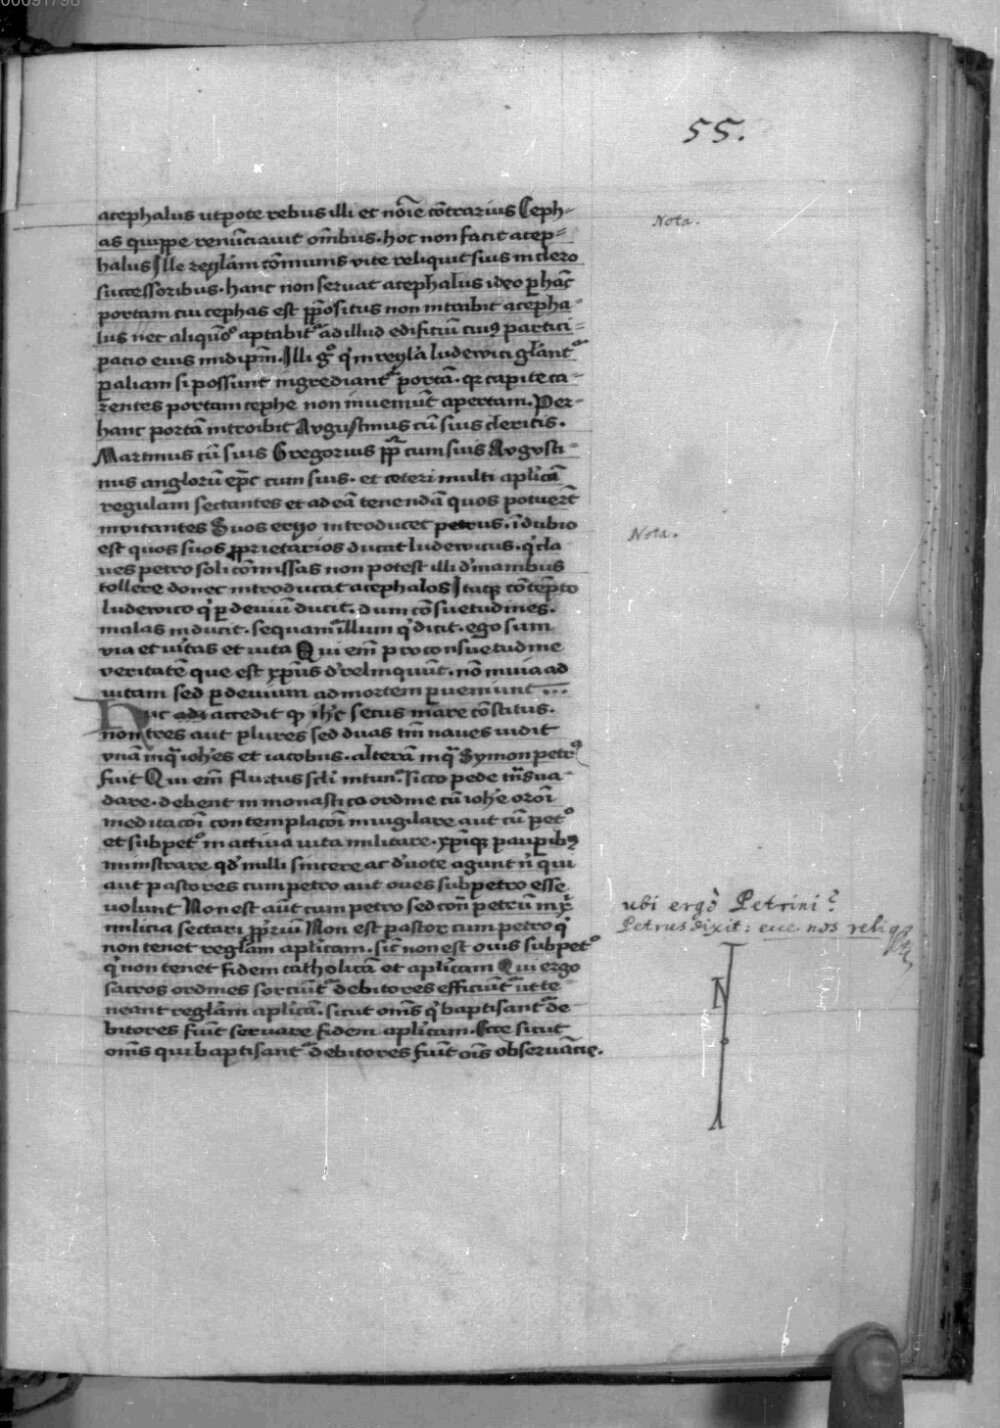 00691798
55.
acephalus utpote rebus illi et nōīe cōtrarius Ceph-
as quippe renūciavit om̄ibus. hoc non facit acep=
halus Ille reglām cōmunis vite reliquit suis in clero
successoribus. hanc non servat acephalus ideo ꝑ hāc
portam cui cephas est ꝓpositus non intrabit acepha
lus nec aliquōº aptabit᷑ ad illud edificiū cuiꝰ partici=
pacio eius in idip̄m. Illi gº qͥ in reglā ludewici glānt᷑
paliam si possunt ingrediant᷑ portā. qꝛ capite ca=
rentes portam cephe non inveniūt apertam. Per=
hanc portā introibit Augustinus cū suis clericis.
Martinus cū suis Gregorius pp̄ cum suis Augusti=
nus anglorū ep̄c cum suis. et ceteri multi aplicā
regulam sectantes et ad eā tenendā quos potuer̄t
invitantes Suos ergo introducet petrus. ī dubio
est quos suos ꝓprietarios ducat ludewicus. qͥ cla
ves petro soli cōmissas non potest illi d' manibus
tollere donec introducat acephalos Itaqꝫ cōtēpto
ludewico qͥ ꝑ deviū ducit. dum cōsuetudines.
malas inducit. sequam᷑ illum qͥ dicit. ego sum
via et v'itas et vita Qui em̄ pro consuetudine
veritatē que est xp̄us d'relinquūt. nō in via ad
vitam sed ꝑ devium ad mortem ꝑveniunt ...
Huc accedit ꝙ ih'c secus mare cōstitus.
non tres aut plures sed duas tm̄ naves vidit
unā in qͣ ioh'es et iacobus. alterā in qͣ Symon petrº
fuit Qui em̄ fluctus scl'i sicco pede
dare. debent in monastico ordine cū ioh'e oroī
meditacōī contemplacōī invigilare aut cū petº
et sub petº in activa vita militare. xp̄iqꝫ pauꝑibꝰ
ministrare qd' nulli sincere ac d'vote agunt nͥ qui
aut pastores cum petro aut oves sub petro esse
volunt Non est aūt cum petro sed conͣ petrū in
milicia sectari ꝓpriū Non est pastor cum petro qͥ
non tenet reglām aplicam. sic̄ non est ovis sub petº
qͥ non tenet fidem catholicā et aplicam Qui ergo
sacros ordines sorciūt᷑ debitores efficiūt᷑ ut te=
neant reglām aplicā. sicut om̄s qͥ baptisant᷑ de
bitores fiūt servare fidem aplicam. Ecce sicut
om̄s qui baptisant᷑ debitores fiūt oīs observācie.
Nota.
Nota.
ubi ergò Petrini?
Petrus dixit: ecce nos reliq
N